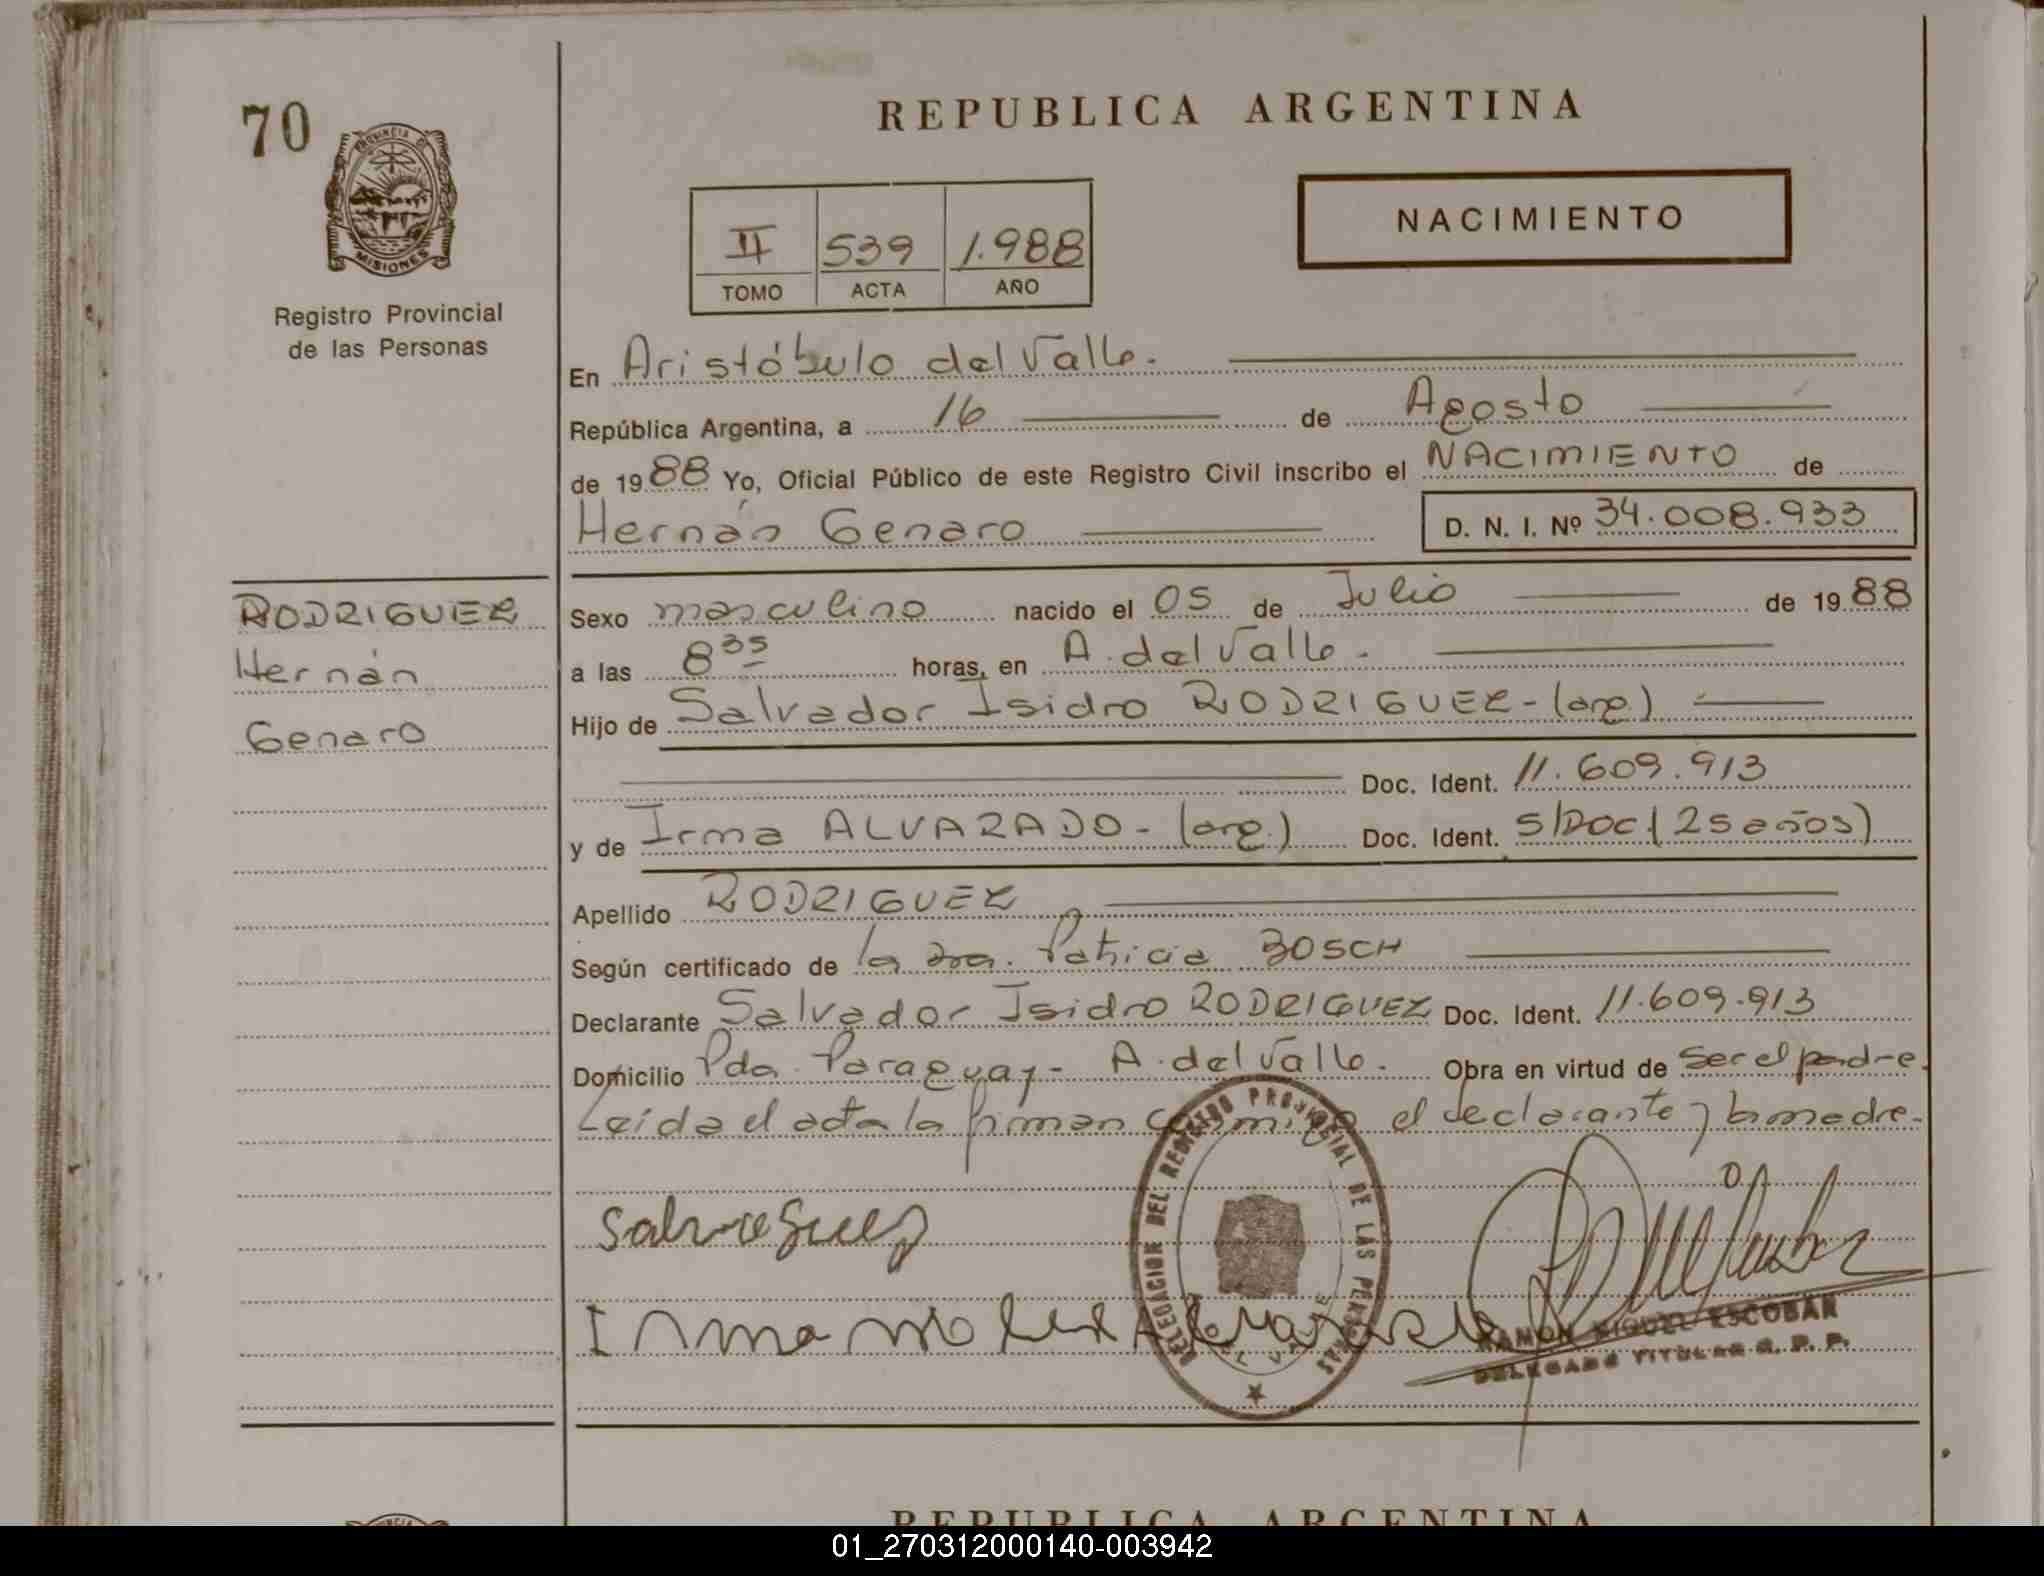 70
REPUBLICA ARGENTINA
PROVINCIA DE
MISIONES
Registro Provincial
de las Personas
II 539 1.988
TOMO ACTA AÑO
NACIMIENTO
En Aristóbulo del Valle.
República Argentina, a 16 de Agosto
de 1988 Yo, Oficial Público de este Registro Civil inscribo el NACIMIENTO de
Hernán Genaro D. N. I. Nº 34.008.933
RODRIGUEZ
Hernán
Genaro
Sexo masculino nacido el 05 de Julio de 1988
a las 8 35 horas, en A. del Valle.
Hijo de Salvador Isidro RODRIGUEZ - (arg.)
Doc. Ident. 11.609.913
y de Irma ALVARADO - (arg.) Doc. Ident. S/DOC. (25 años)
Apellido RODRIGUEZ
Según certificado de la Dra. Patricia BOSCH
Declarante Salvador Isidro RODRIGUEZ Doc. Ident. 11.609.913
Domicilio Pda. Paraguay - A. del Valle. Obra en virtud de ser el padre.
Leída el acta la firman conmigo el declarante y la madre.
DELEGACION DEL REGISTRO PROVINCIAL DE LAS PERSONAS
Irma
RAMON MIGUEL ESCOBAR
DELEGADO TITULAR R. P. P.
REPUBLICA ARGENTINA
01_270312000140-003942